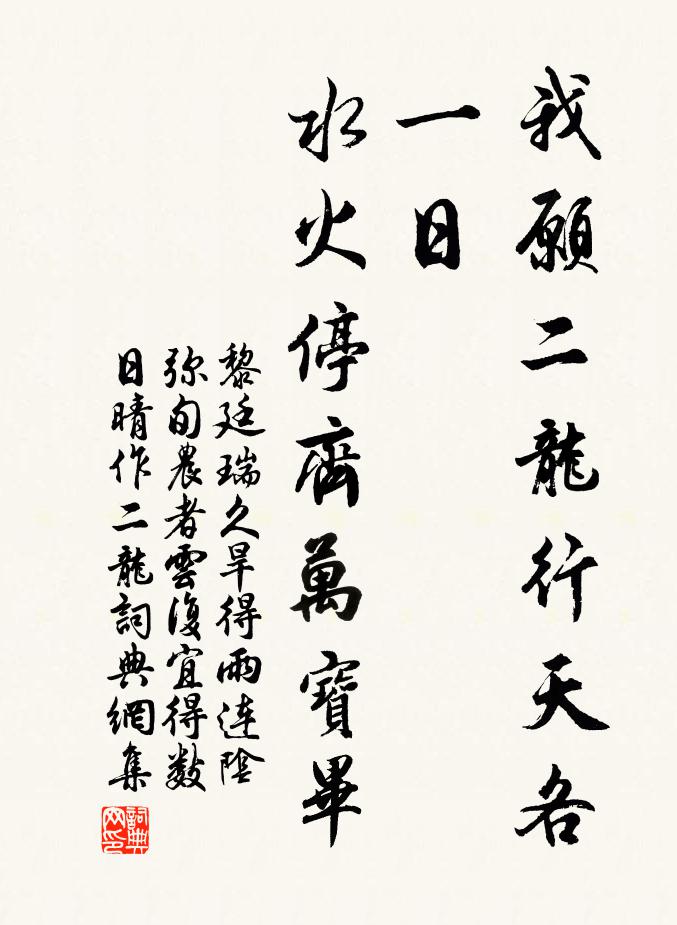 我願二龍行天各
一日
水火停齊萬寶畢
黎廷瑞久旱得雨连陰
弥旬農者雲復宜得数
日晴作二龍詞典網集
詞典
网印